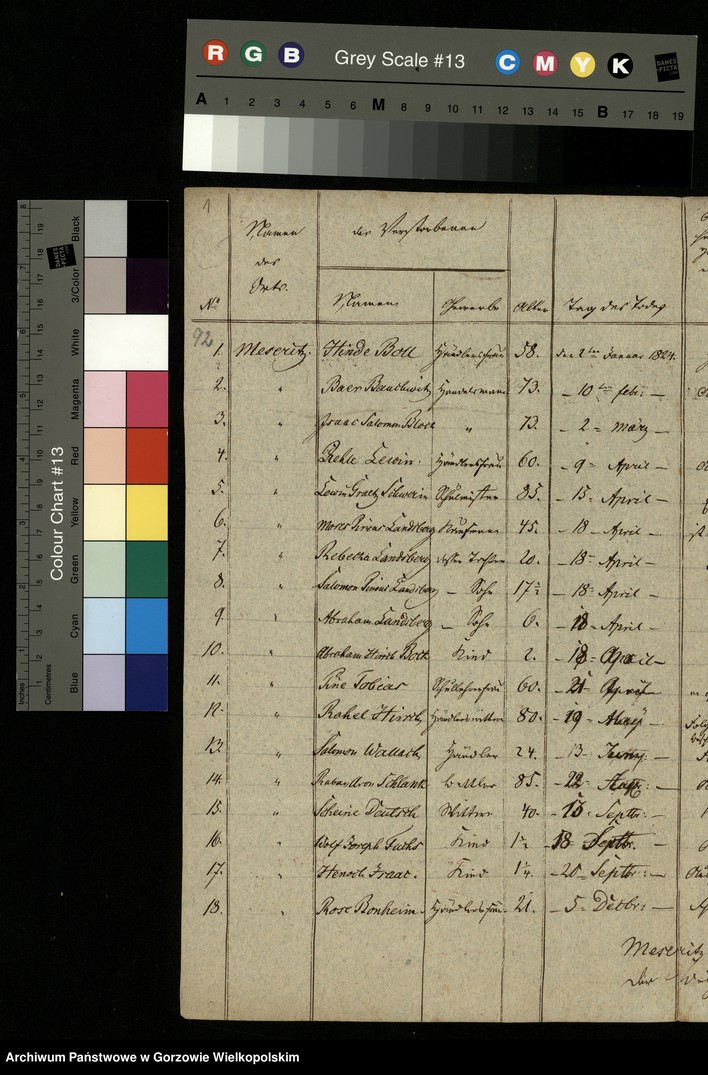 R G B Grey Scale #13 C M Y K DANES-PICTA
A 1 2 3 4 5 6 M 8 9 10 11 12 13 14 15 B 17 18 19
Colour Chart #13
Blue Cyan Green Yellow Red Magenta White 3/Color Black
Inches Centimetres
1
Namen des Orts.
der Verstorbenen
No Namen Gewerbe Alter Tag des Todes
92
1. Meseritz. Hinde Boll Händlersfrau 58. den 2ten Januar 1824.
2. " Baer Bauchwitz Handelsmann 73. – 10ten febr: –
3. " Isaac Salomon Block " 73. – 2 = März –
4. " Lewin. Händlersfrau 60. – 9 = April –
5. " Lewin Graetz Schwerin 85. – 15 = April –
6. " Moses Pincus Landsberg Kaufmann 45. – 18 – April –
7. " Rebecka Landsberg 20. – 18 = April –
8. " Salomon Pincus Landsberg – Sohn 17 – 18 = April –
9. " Abraham Landsberg – Sohn 6. – 18 = April –
10. " Abraham Hirsch Kind 2. – 18 = April –
11. " Tobias Schullehrerfrau 60. – 21 = April –
12. " Rahel Hirsch Händlerswittwe 80. – 19 = May –
13. " Salomon Wallach Händler 24. – 13 –
14. " Schlank Bettler 85. – 22 =
15. " Scheine Deutsch Wittwe 40. – Septbr: –
16. " Wolf Joseph Fuchs Kind – 18 Septbr. –
17. " Henoch Isaac. Kind 1¼. – 20 = Septbr: –
18. " Rose Bonheim. Händlersfrau 21. – 5 = Decbr: –
Meseritz
Der
Archiwum Państwowe w Gorzowie Wielkopolskim